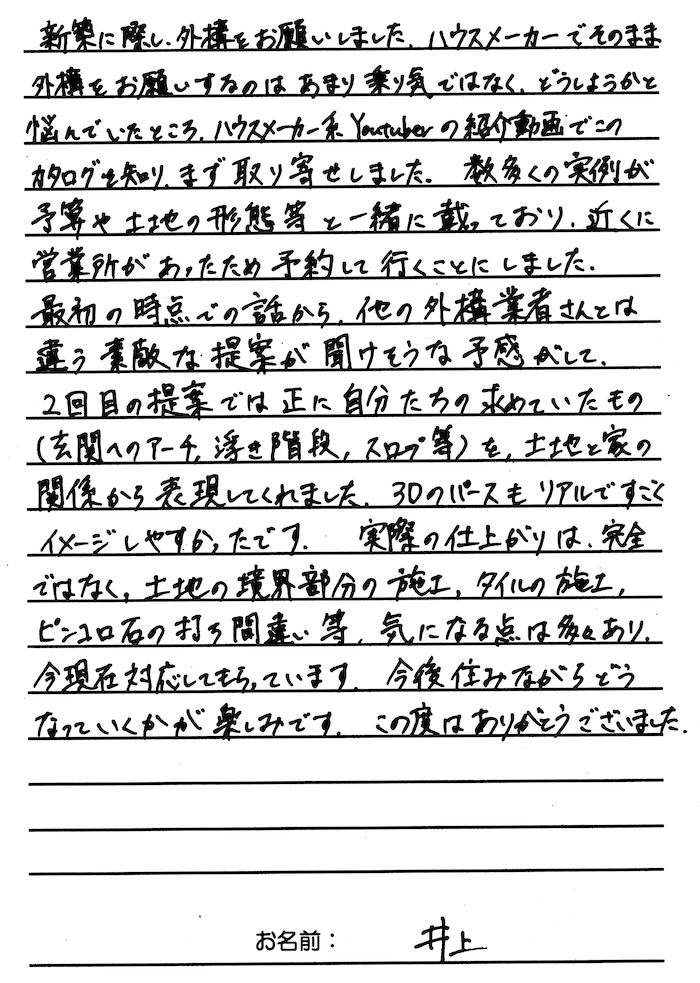 新築に際し、外構をお願いしました。ハウスメーカーでそのまま
外構をお願いするのはあまり乗り気ではなく、どうしようかと
悩んでいたところ、ハウスメーカー系Youtuberの紹介動画でこの
カタログを知り、まず取り寄せしました。数多くの実例が
予算や土地の形態等と一緒に載っており、近くに
営業所があったため予約して行くことにしました。
最初の時点での話から、他の外構業者さんとは
違う素敵な提案が聞けそうな予感がして、
2回目の提案では正に自分たちの求めていたもの
(玄関へのアーチ、浮き階段、スロープ等)を、土地と家の
関係から表現してくれました。3Dのパースもリアルですごく
イメージしやすかったです。実際の仕上がりは、完全
ではなく、土地の境界部分の施工、タイルの施工、
ピンコロ石の打ち間違い等、気になる点は多々あり、
今現在対応してもらっています。今後住みながらどう
なっていくかが楽しみです。この度はありがとうございました。
お名前: 井上